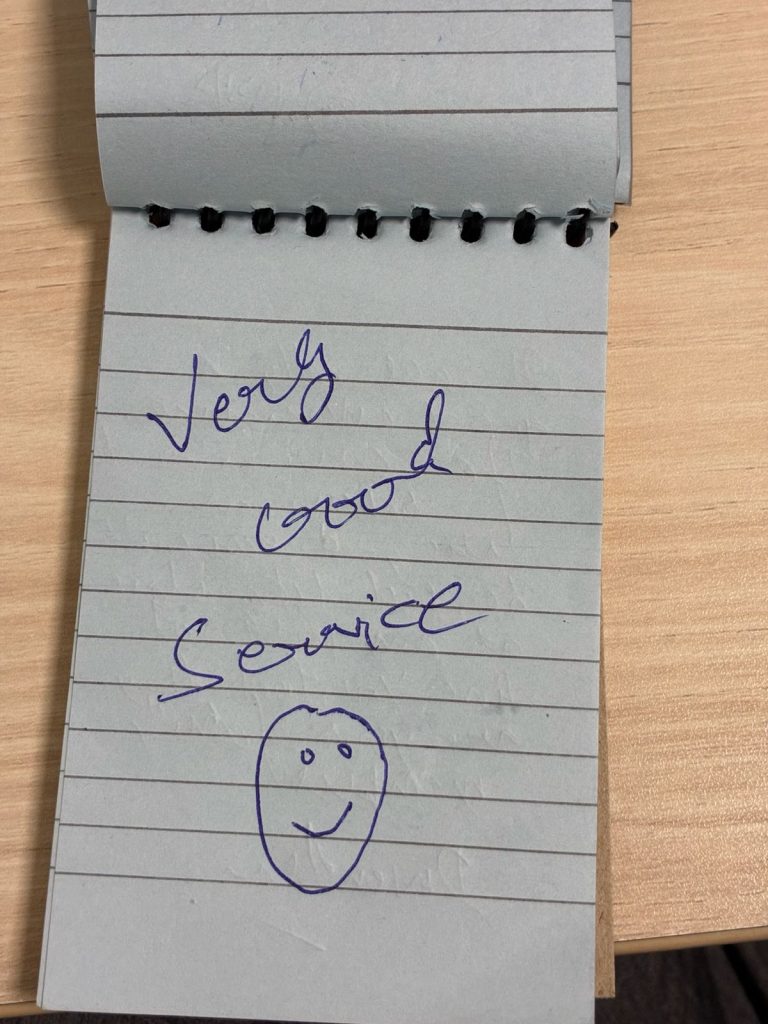 Very
Good
Service